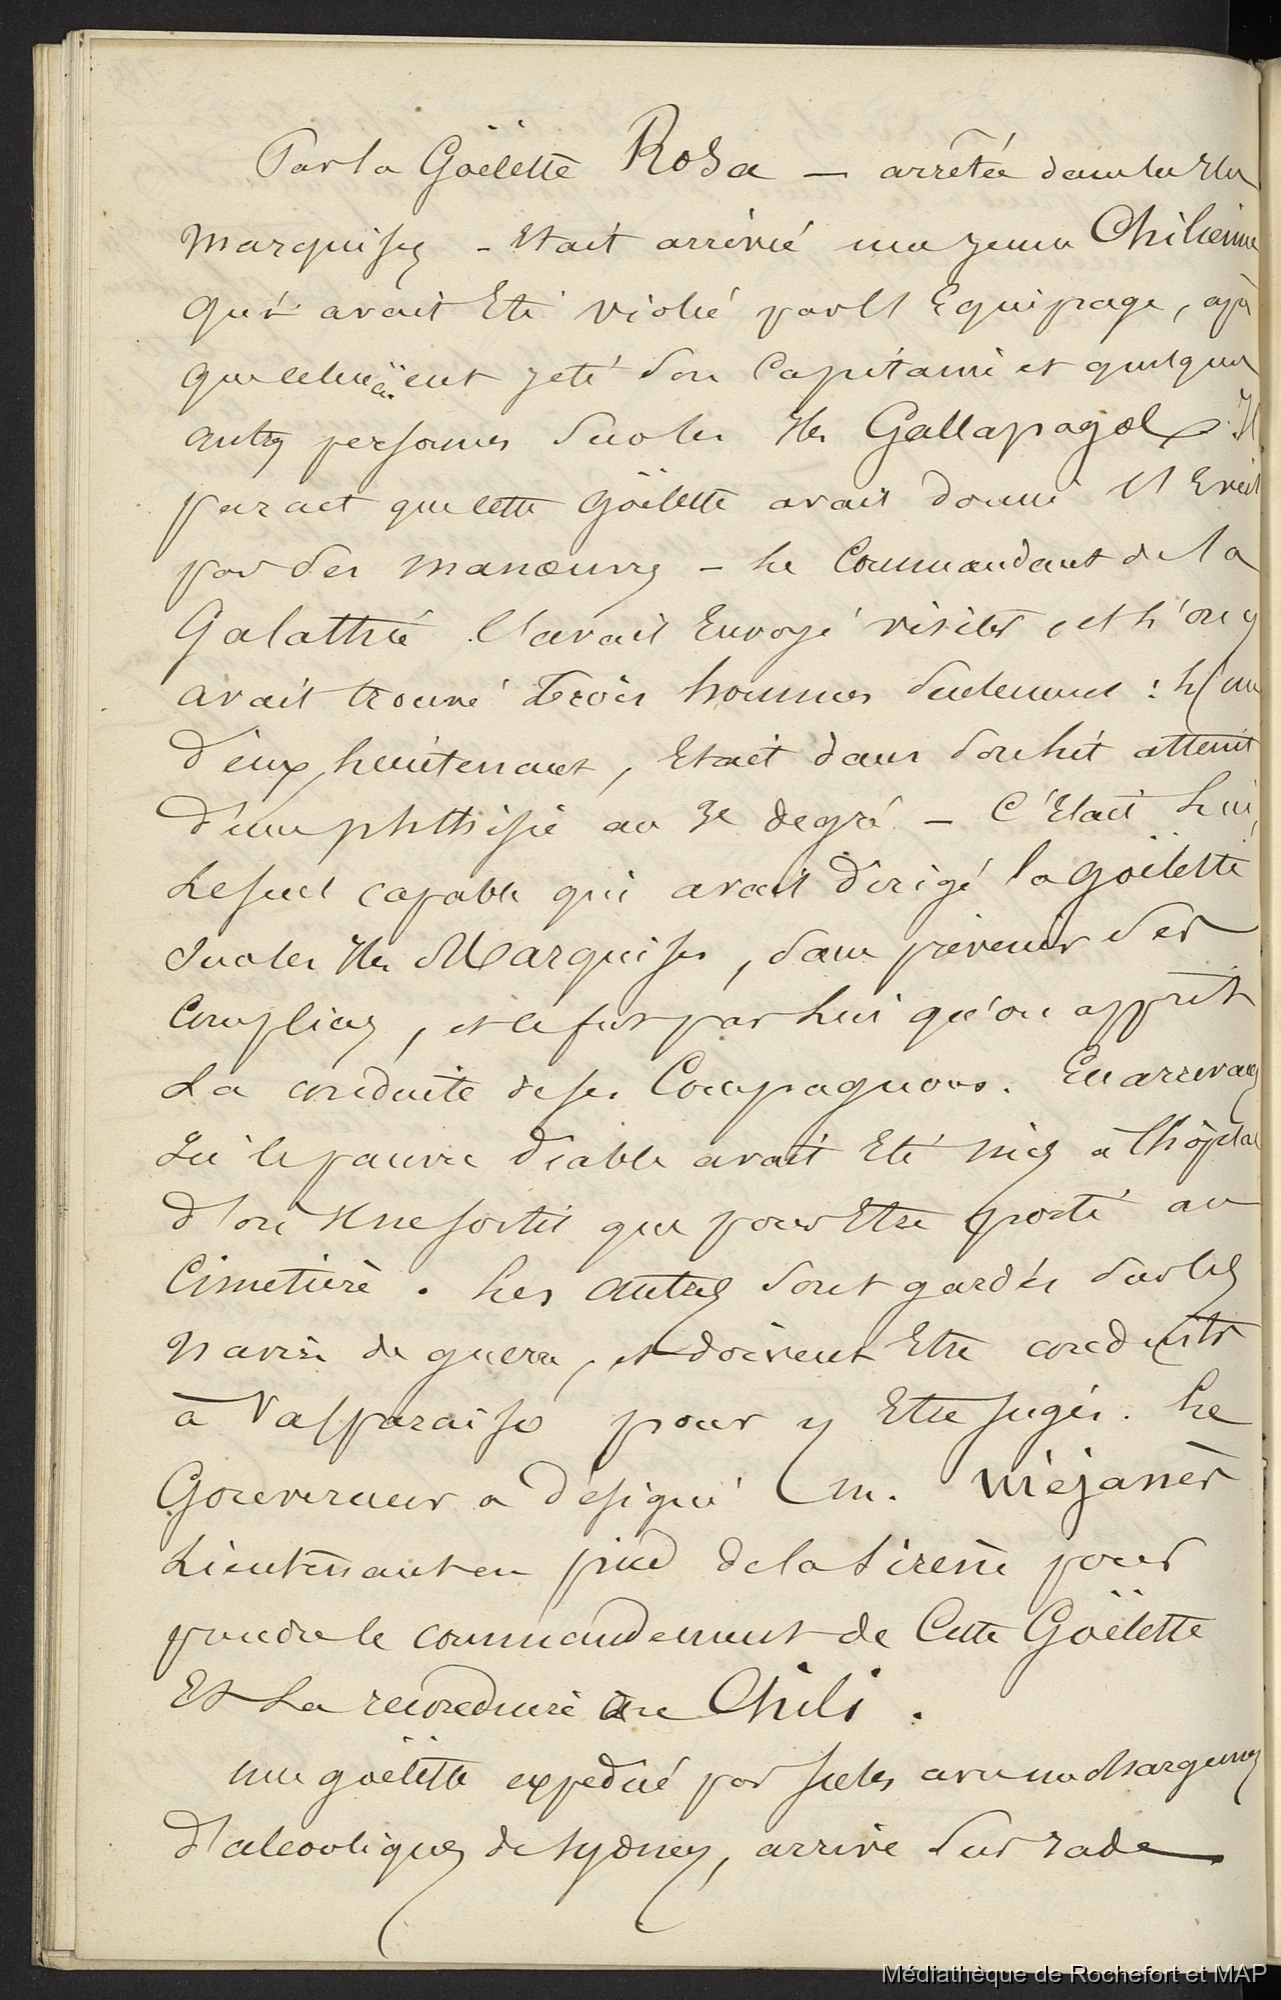 Par la Goëlette Rosa — arrêtée dans les Iles
Marquises - Etait arrivée une jeune Chilienne
qui avait Eté violée par l' Equipage, après
que celui ci eut jeté son Capitaine et quelques
autres personnes sur les Iles Gallapagos. Il
parait que cette Goëlette avait donné l'Eveil
par ses manœuvres - Le Commandant de la
Galathée l'avait Envoyé visiter, et l'on y
avait trouvé trois hommes seulement : L'un
d'eux, Lieutenant, Etait dans son lit atteint
d'une phthisie au 3e degré - C'Etait Lui,
Le seul capable qui avait dirigé la goëlette
sur les Iles Marquises, sans prévenir ses
Complices, et ce fut par Lui qu'on apprit
La conduite de ses Compagnons. En arrivant
Ici le pauvre diable avait Eté mis à l'hôpital
d'où Il ne sortit que pour Etre porté au
Cimetière. Les autres sont gardés sur les
navires de guerre, et doivent Etre conduits
à Valparaiso pour y Etre jugés. Le
Gouverneur a désigné M. Méjanès
Lieutenant en pied de la Sirène pour
prendre le commandement de Cette Goëlette
Et La reconduire au Chili.
une goëlette expediée par avec un chargement
d'alcooliques de Sydney, arrive sur rade
Médiathèque de Rochefort et MAP